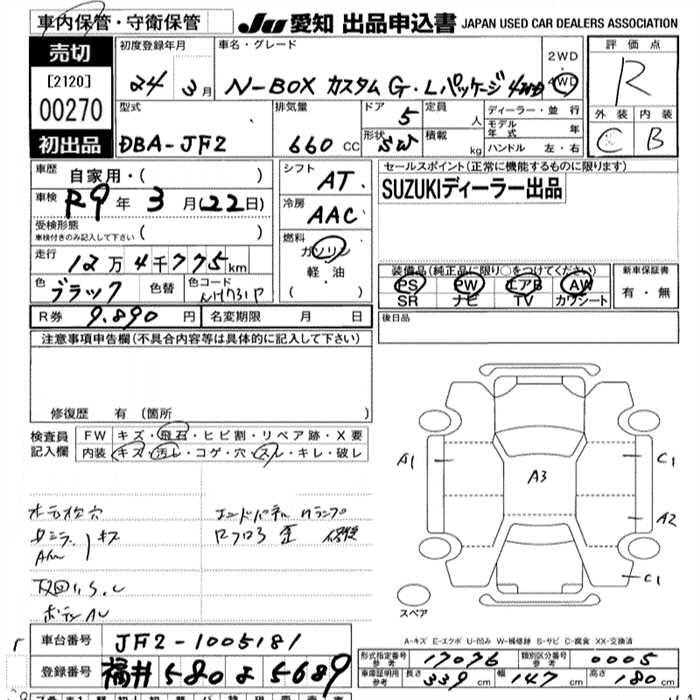 車内保管・守衛保管
JU 愛知 出品申込書 JAPAN USED CAR DEALERS ASSOCIATION
売切
[2120]
00270
初出品
初度登録年月
24年 3月
車名・グレード
N-BOX カスタム G・Lパッケージ 4WD
2WD
4WD
評価点
R
外装 内装
C B
型式
DBA-JF2
排気量
660 CC
ドア
5
形状
SW
定員 人
積載 kg
ディーラー・並行
モデル年式 年
ハンドル 左・右
車歴
自家用・( )
車検 R9年 3月(22日)
受検形態
車検付きのみ記入して下さい ( )
走行 12万4千775km
色 ブラック 色替 色コード
シフト
AT
冷房
AAC
燃料
ガソリン
軽油
( ・ )
セールスポイント(正常に機能するものに限ります)
SUZUKIディーラー出品
装備品(純正品に限り○をつけてください)
PS PW エアB AW
SR ナビ TV カワシート
新車保証書
有・無
R券 9.890 円 名変期限 月 日
後日品
注意事項申告欄(不具合内容等は具体的に記入して下さい)
修復歴 有 (箇所 )
検査員記入欄
FW キズ・飛石・ヒビ割・リペア跡・X要
内装 キズ・汚レ・コゲ・穴・スレ・キレ・破レ
A1
A3
C1
A2
C1
スペア
A-キズ E-エクボ U-凹み W-補修跡 S-サビ C-腐食 XX-交換済
車台番号 JF2-1005181
登録番号 福井 580 よ 5689
形式指定番号 参考 17076
類別区分番号 参考 0005
車庫証明用 参考 長さ 339 cm 幅 147 cm 高さ 180 cm